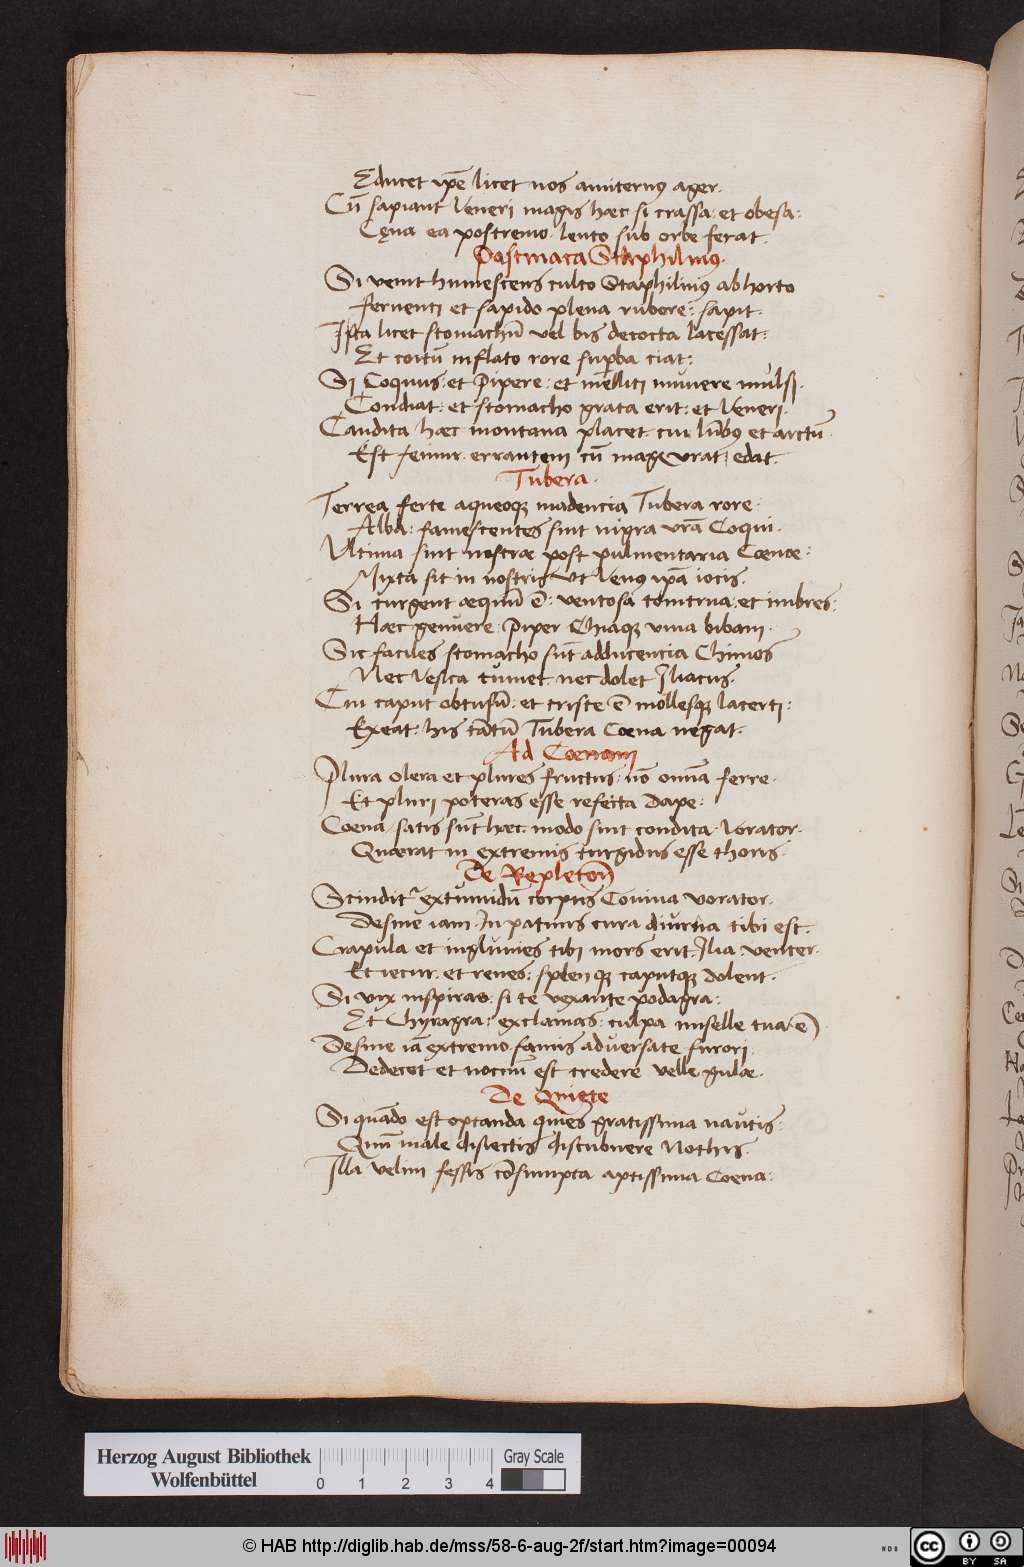 Educet ip̄e licet nos amiternꝰ ager.
Cū sapiant Veneri magis hæc si crassa: et obesa:
Cęna ea postremo lento sub orbe ferat.
Pastinaca Staphilinus.
Si venit humescens culto Staphilinꝰ ab horto
ferventi et sapido plena rubore: sapit.
Ista licet stomachū vel bis decocta lacessat:
Et coitū inflato rore supba ciat:
Si Coquus: et Pipere: et melliti munere mulsi.
Condiat: et stomacho grata erit: et Veneri.
Candita hæc montana placet. cui lūbꝰ et arctū
Est femur. errantem cū magę vrat, edat.
Tubera.
Terrea ferte aqueoqꝫ madencia Tubera rore:
Alba: famescentes sint nigra vrā Coqui.
Vltima sint nostræ post pulmentaria Cœnæ:
Mixta sit in nostris vt Venꝰ ipā iocis.
Si turgent æquū ē: ventosa tonitrua: et imbres:
Hæc genuere: Piper Chiaqꝫ vina bibam.
Sic faciles stomacho sūt adducencia Chimos
Nec Vesica tumet. nec dolet Iliacus.
Cui caput obtusū: et triste ē mollesqꝫ lacerti:
Exeat: his tātū Tubera Cœna negat.
Ad Cœnam
Plura olera et plures fructus: nō omīa ferre.
Et pluri poteras esse refecta dape:
Coena satis sūt hæc. modo sint condita. Vorator.
Quærat in extremis turgidus esse thoris.
De Repletōe
Scinditʳ extumidū corpus Coniua vorator.
Desine iam. In patinis cura diurna tibi est.
Crapula et ingluuies tibi mors erit. Ilia: venter.
Et iecur. et renes: splen qꝫ caputqꝫ dolent.
Si vix inspiras: si te vexante podagra:
Et Chyragra: exclamas: culpa miselle tua ē
Desine iā extremo famis aduersate furori:
Dedecet et nocuū est credere velle gulæ.
De Quiete
Si quādo est optanda quies gratissima nautis:
Quū male disiectis discubuere Nothis.
Illā velim fessis cōsumpta aptissima Coena:
Herzog August Bibliothek
Wolfenbüttel
0 1 2 3 4
Gray Scale
© HAB http://diglib.hab.de/mss/58-6-aug-2f/start.htm?image=00094
cc BY SA